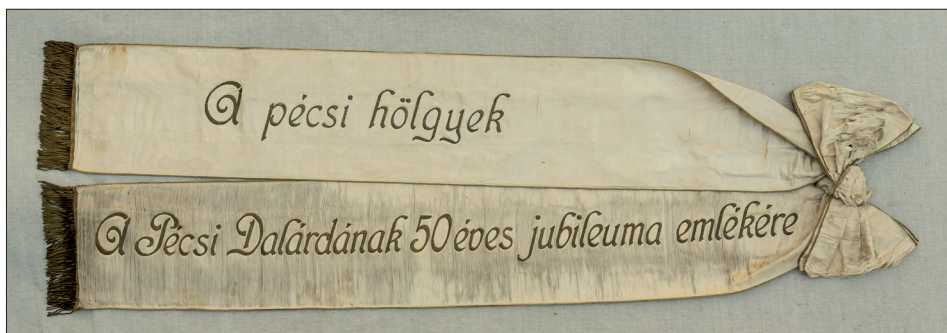 A pécsi hölgyek
A Pécsi Dalárdának 50 éves jubileuma emlékére